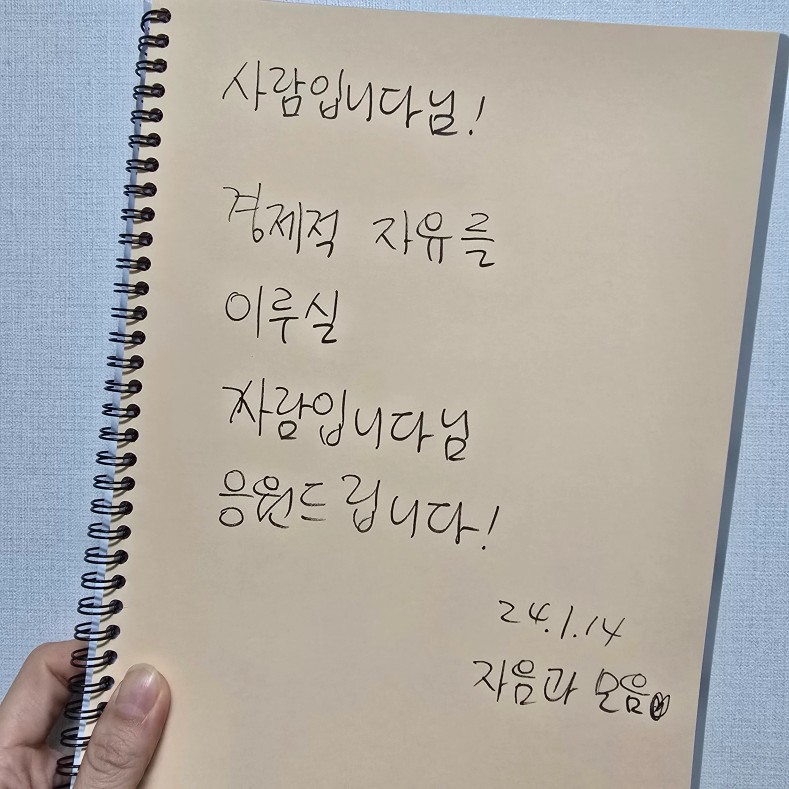 사람입니다님!
경제적 자유를
이루실
사람입니다님
응원드립니다!
24.1.14
자음과 모음